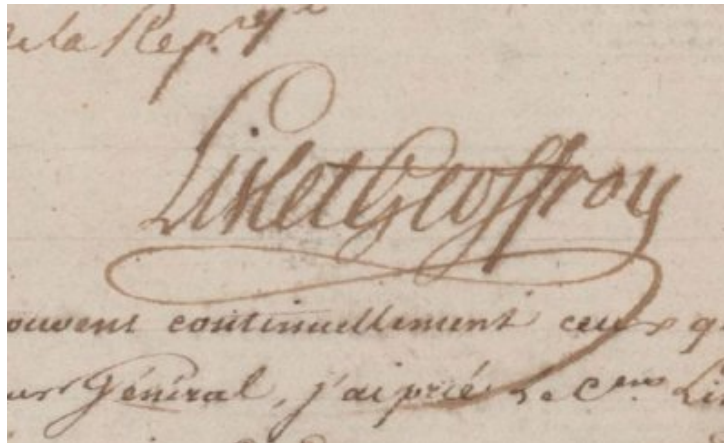 de la Rep.que
Lislet Geoffroy
ouvent continuellement ceux q
Général, j'ai prié le Cen Li